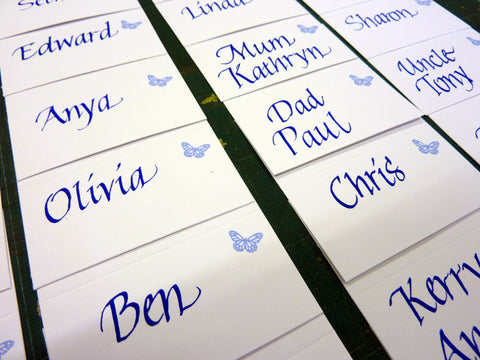 Edward
Anya
Olivia
Ben
Linda
Mum
Kathryn
Dad
Paul
Chris
Kerry
Sharon
Uncle
Tony